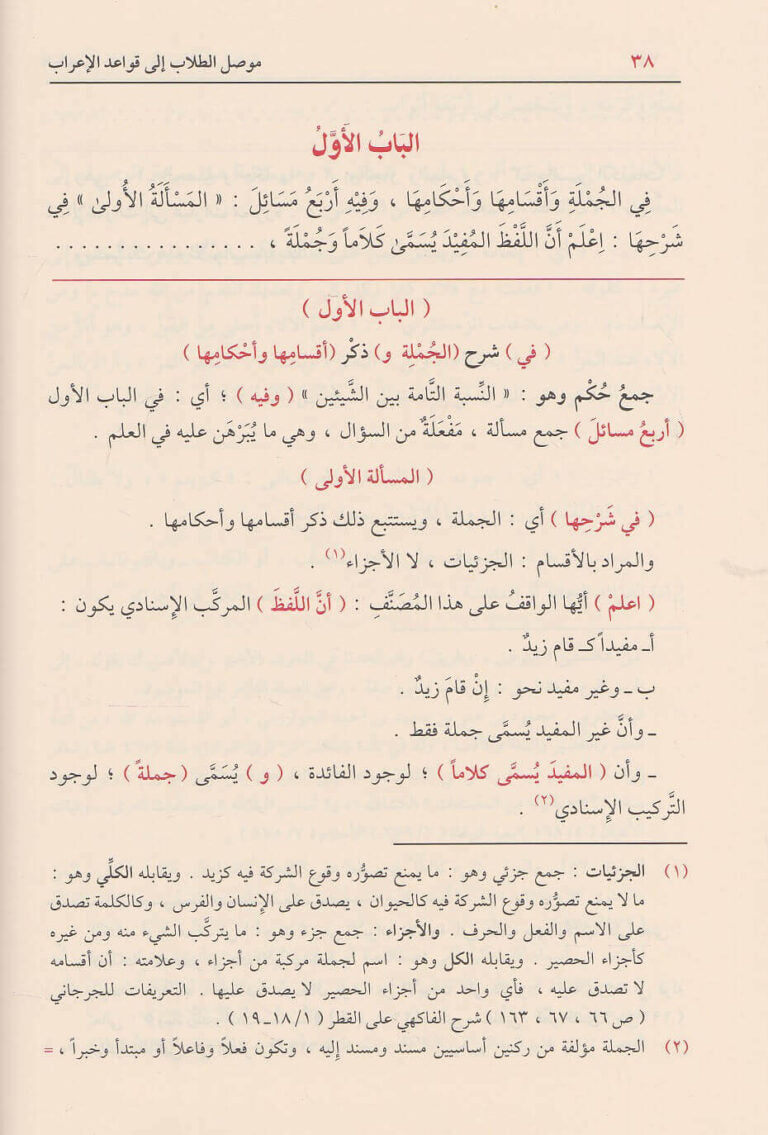 ٣٨ موصل الطلاب إلى قواعد الإعراب
البَابُ الأَوَّلُ
فِي الجُمْلَةِ وَأَقْسَامِهَا وَأَحْكَامِهَا ، وَفِيْهِ أَرْبَعُ مَسَائِلَ : « المَسْأَلَةُ الأُولىٰ » فِي
شَرْحِهَا : اِعْلَمْ أَنَّ اللَّفْظَ المُفِيْدَ يُسَمَّىٰ كَلَاماً وَجُمْلَةً ، . . . . . . . . . . . . . . . .
( الباب الأول )
( في ) شرح (الجُمْلةِ و) ذكْر (أقسامِها وأحْكامِها )
جمعُ حُكْم وهو : « النِّسبة التَّامة بين الشَّيئين » ( وفيه ) ؛ أي : في الباب الأول
( أربعُ مسائلَ ) جمع مسألة ، مَفْعَلَةٌ من السؤال ، وهي ما يُبَرْهَن عليه في العلم .
( المسألة الأولى )
( في شَرْحِها ) أي : الجملة ، ويستتبع ذلك ذكر أقسامها وأحكامها .
والمراد بالأقسام : الجزئيات ، لا الأجزاء(١) .
( اعلمْ ) أيُّها الواقفُ على هذا المُصَنَّفِ : ( أنَّ اللَّفظَ ) المركَّب الإسنادي يكون :
أ ـ مفيداً كـ قام زيدٌ .
ب ـ وغير مفيد نحو : إنْ قامَ زيدٌ .
ـ وأنَّ غير المفيد يُسمَّى جملة فقط .
ـ وأن ( المفيدَ يُسمَّى كلاماً ) ؛ لوجود الفائدة ، ( و ) يُسَمَّى ( جملةً ) ؛ لوجود
التَّركيب الإسنادي(٢) .
(١) الجزئيات : جمع جزئي وهو : ما يمنع تصوُّره وقوع الشركة فيه كزيد . ويقابله الكلِّي وهو :
ما لا يمنع تصوُّره وقوع الشركة فيه كالحيوان ، يصدق على الإنسان والفرس ، وكالكلمة تصدق
على الاسم والفعل والحرف . والأجزاء : جمع جزء وهو : ما يتركَّب الشيء منه ومن غيره
كأجزاء الحصير . ويقابله الكل وهو : اسم لجملة مركبة من أجزاء ، وعلامته : أن أقسامه
لا تصدق عليه ، فأي واحد من أجزاء الحصير لا يصدق عليها . التعريفات للجرجاني
( ص ٦٦ ، ٦٧ ، ١٦٣ ) شرح الفاكهي على القطر ( ١/ ١٨ـ ١٩ ) .
(٢) الجملة مؤلفة من ركنين أساسيين مسند ومسند إليه ، وتكون فعلاً وفاعلاً أو مبتدأ وخبراً ، =